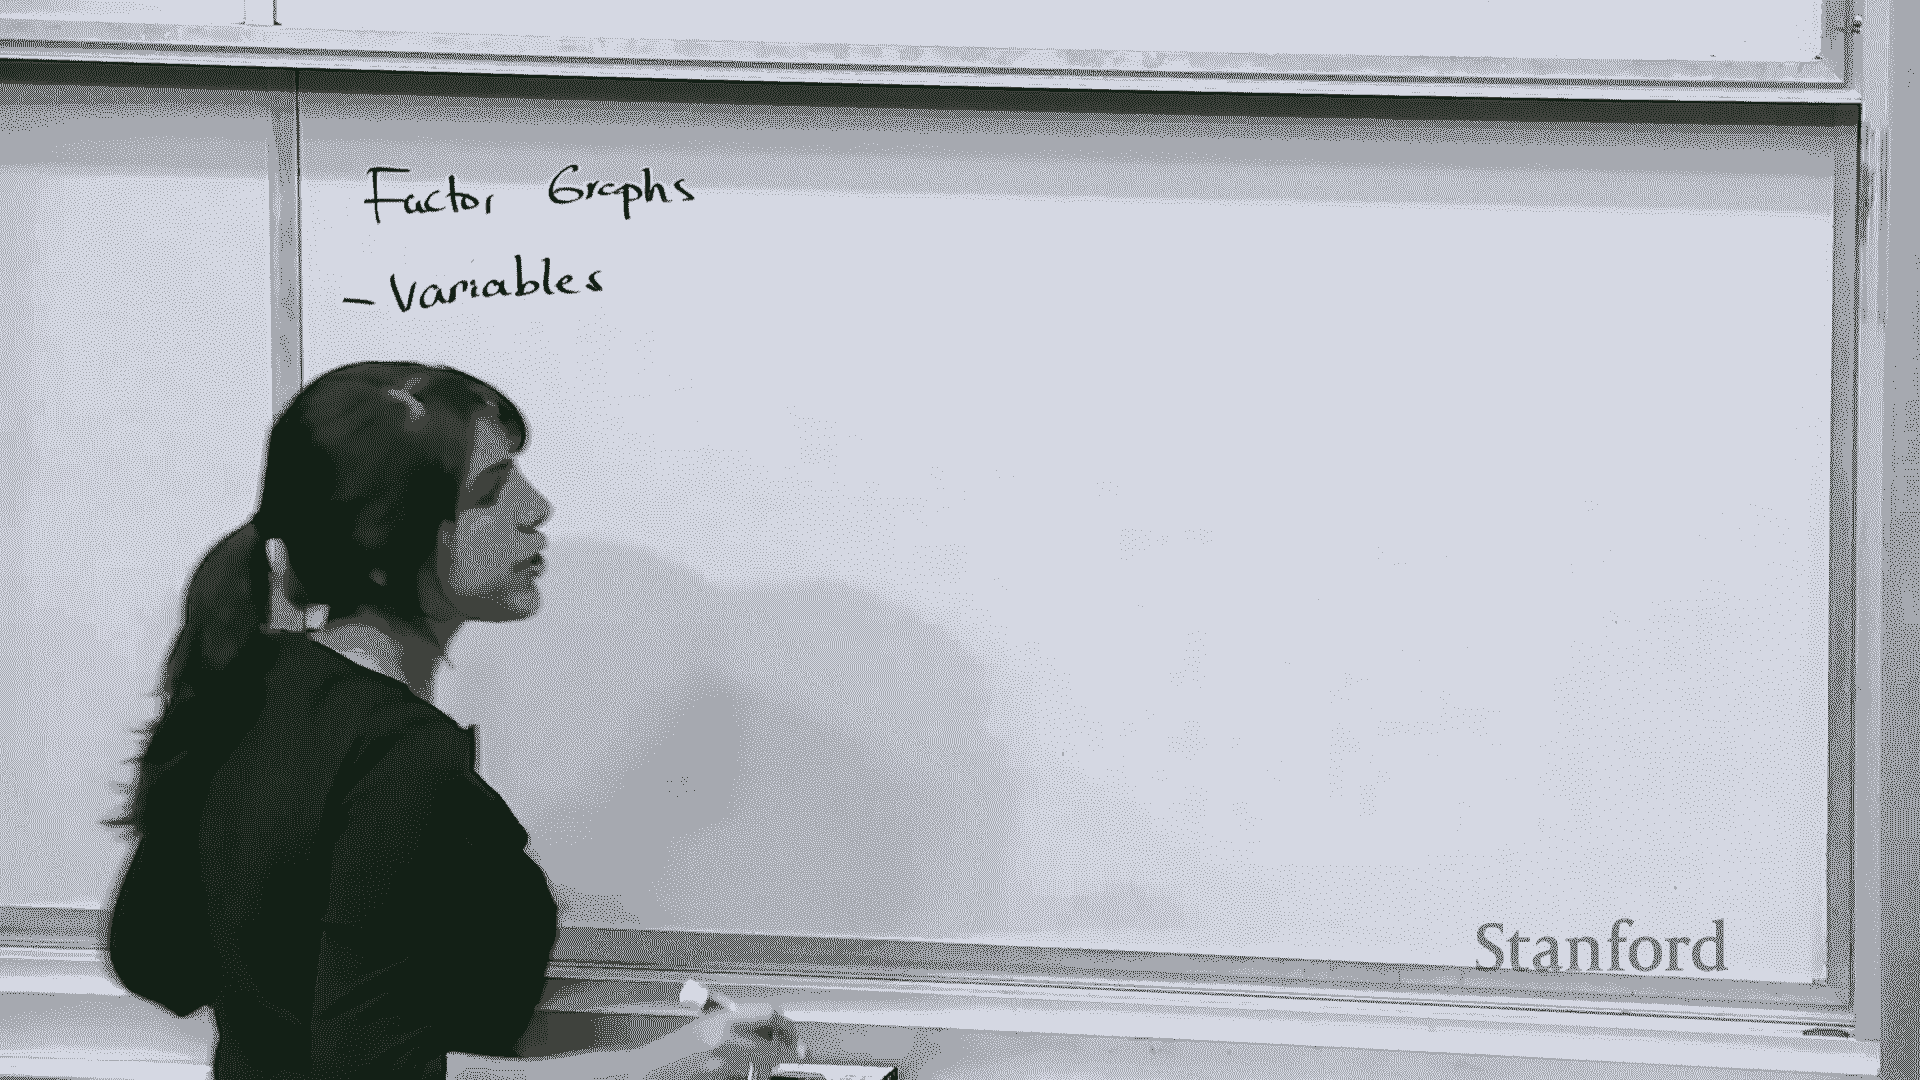 Factor Graphs
- Variables
Stanford